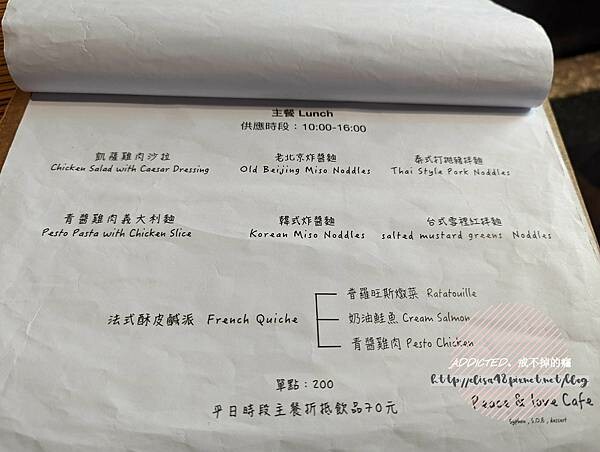 主餐 Lunch
供應時段：10:00-16:00
凱薩雞肉沙拉
Chicken Salad with Caesar Dressing
老北京炸醬麵
Old Beijing Miso Noddles
泰式打拋豬拌麵
Thai Style Pork Noddles
青醬雞肉義大利麵
Pesto Pasta with Chicken Slice
韓式炸醬麵
Korean Miso Noddles
台式雪裡紅拌麵
salted mustard greens Noddles
法式酥皮鹹派 French Quiche
普羅旺斯燉菜 Ratatouille
奶油鮭魚 Cream Salmon
青醬雞肉 Pesto Chicken
單點：200
平日時段主餐折抵飲品70元
ADDICTED、戒不掉的癮
http://elisa98.pixnet.net/blog
Peace & love Cafe
Syphon , S.O.E , dessert